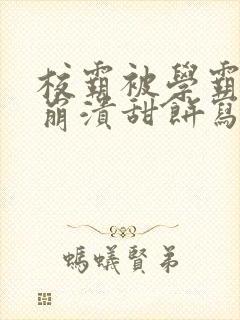 校霸被學霸
崩潰甜餅寫
螞蟻賢弟